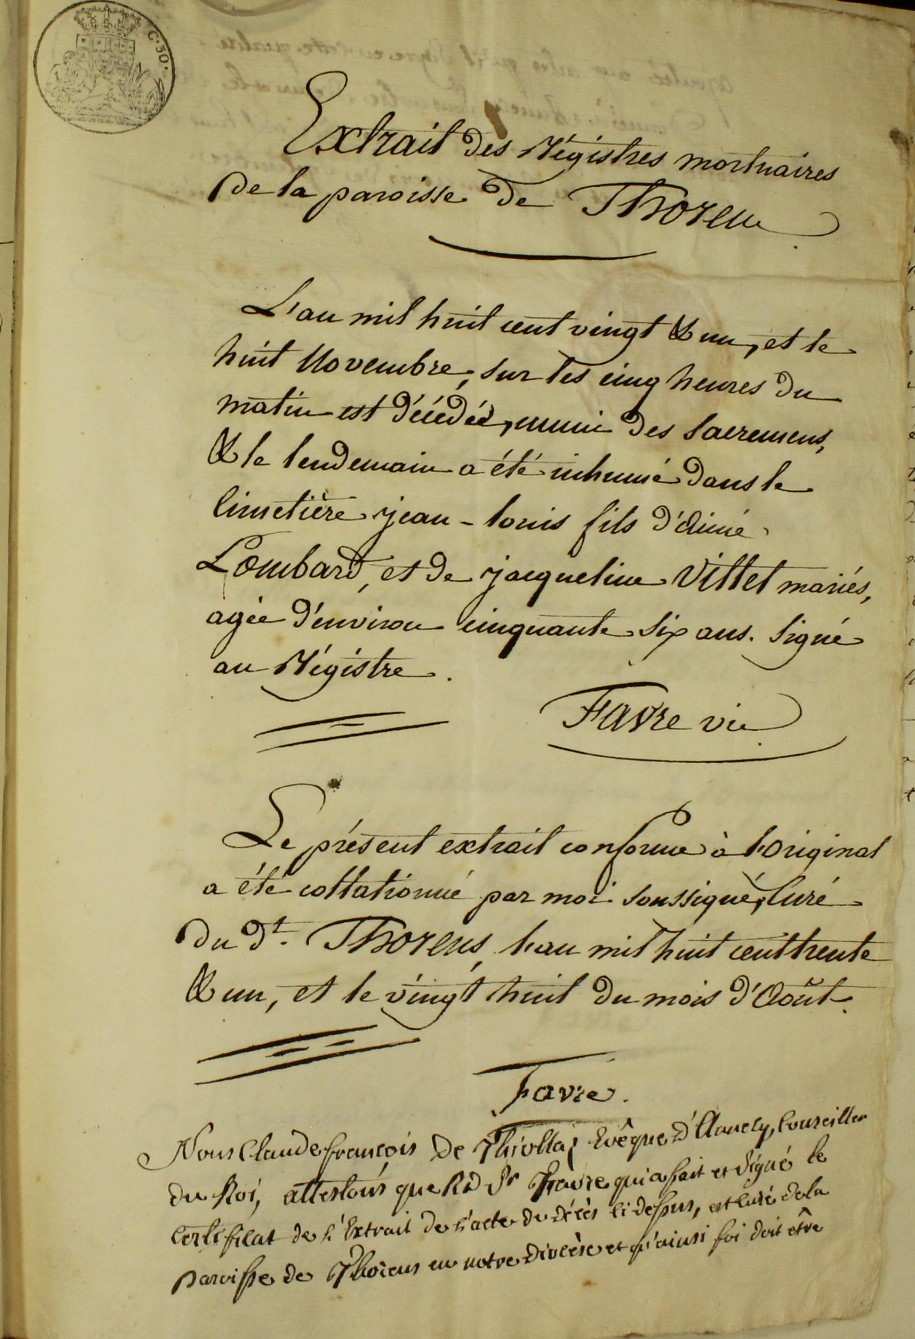 C. 50.
Extrait des Régistres mortuaires
de la paroisse de Thorens
L'an mil huit cent vingt & un, et le
huit Novembre, sur les cinq heures du
matin est décédé, muni des Sacremens,
& le lendemain a été inhumé dans le
Cimetière jean-louis fils d'aimé
Lombard, et de jacqueline Villet mariés,
agée d'environ cinquante six ans. Signé
au Régistre.
Favre vic
Le présent extrait conforme à l'original
a été collationné par moi soussigné, Curé
du dt. Thorens, l'an mil huit cent trente
& un, et le vingt huit du mois d'Août.
Favre.
Nous Claude françois de Thiollaz Evêque d'Annecy, Conseiller
du Roi, attestons que Rd Sr Favre qui a fait et signé le
Certificat de l'Extrait de l'acte de décès ci dessus, est curé de la
paroisse de Thorens en notre diocèse et qu'ainsi foi doit être